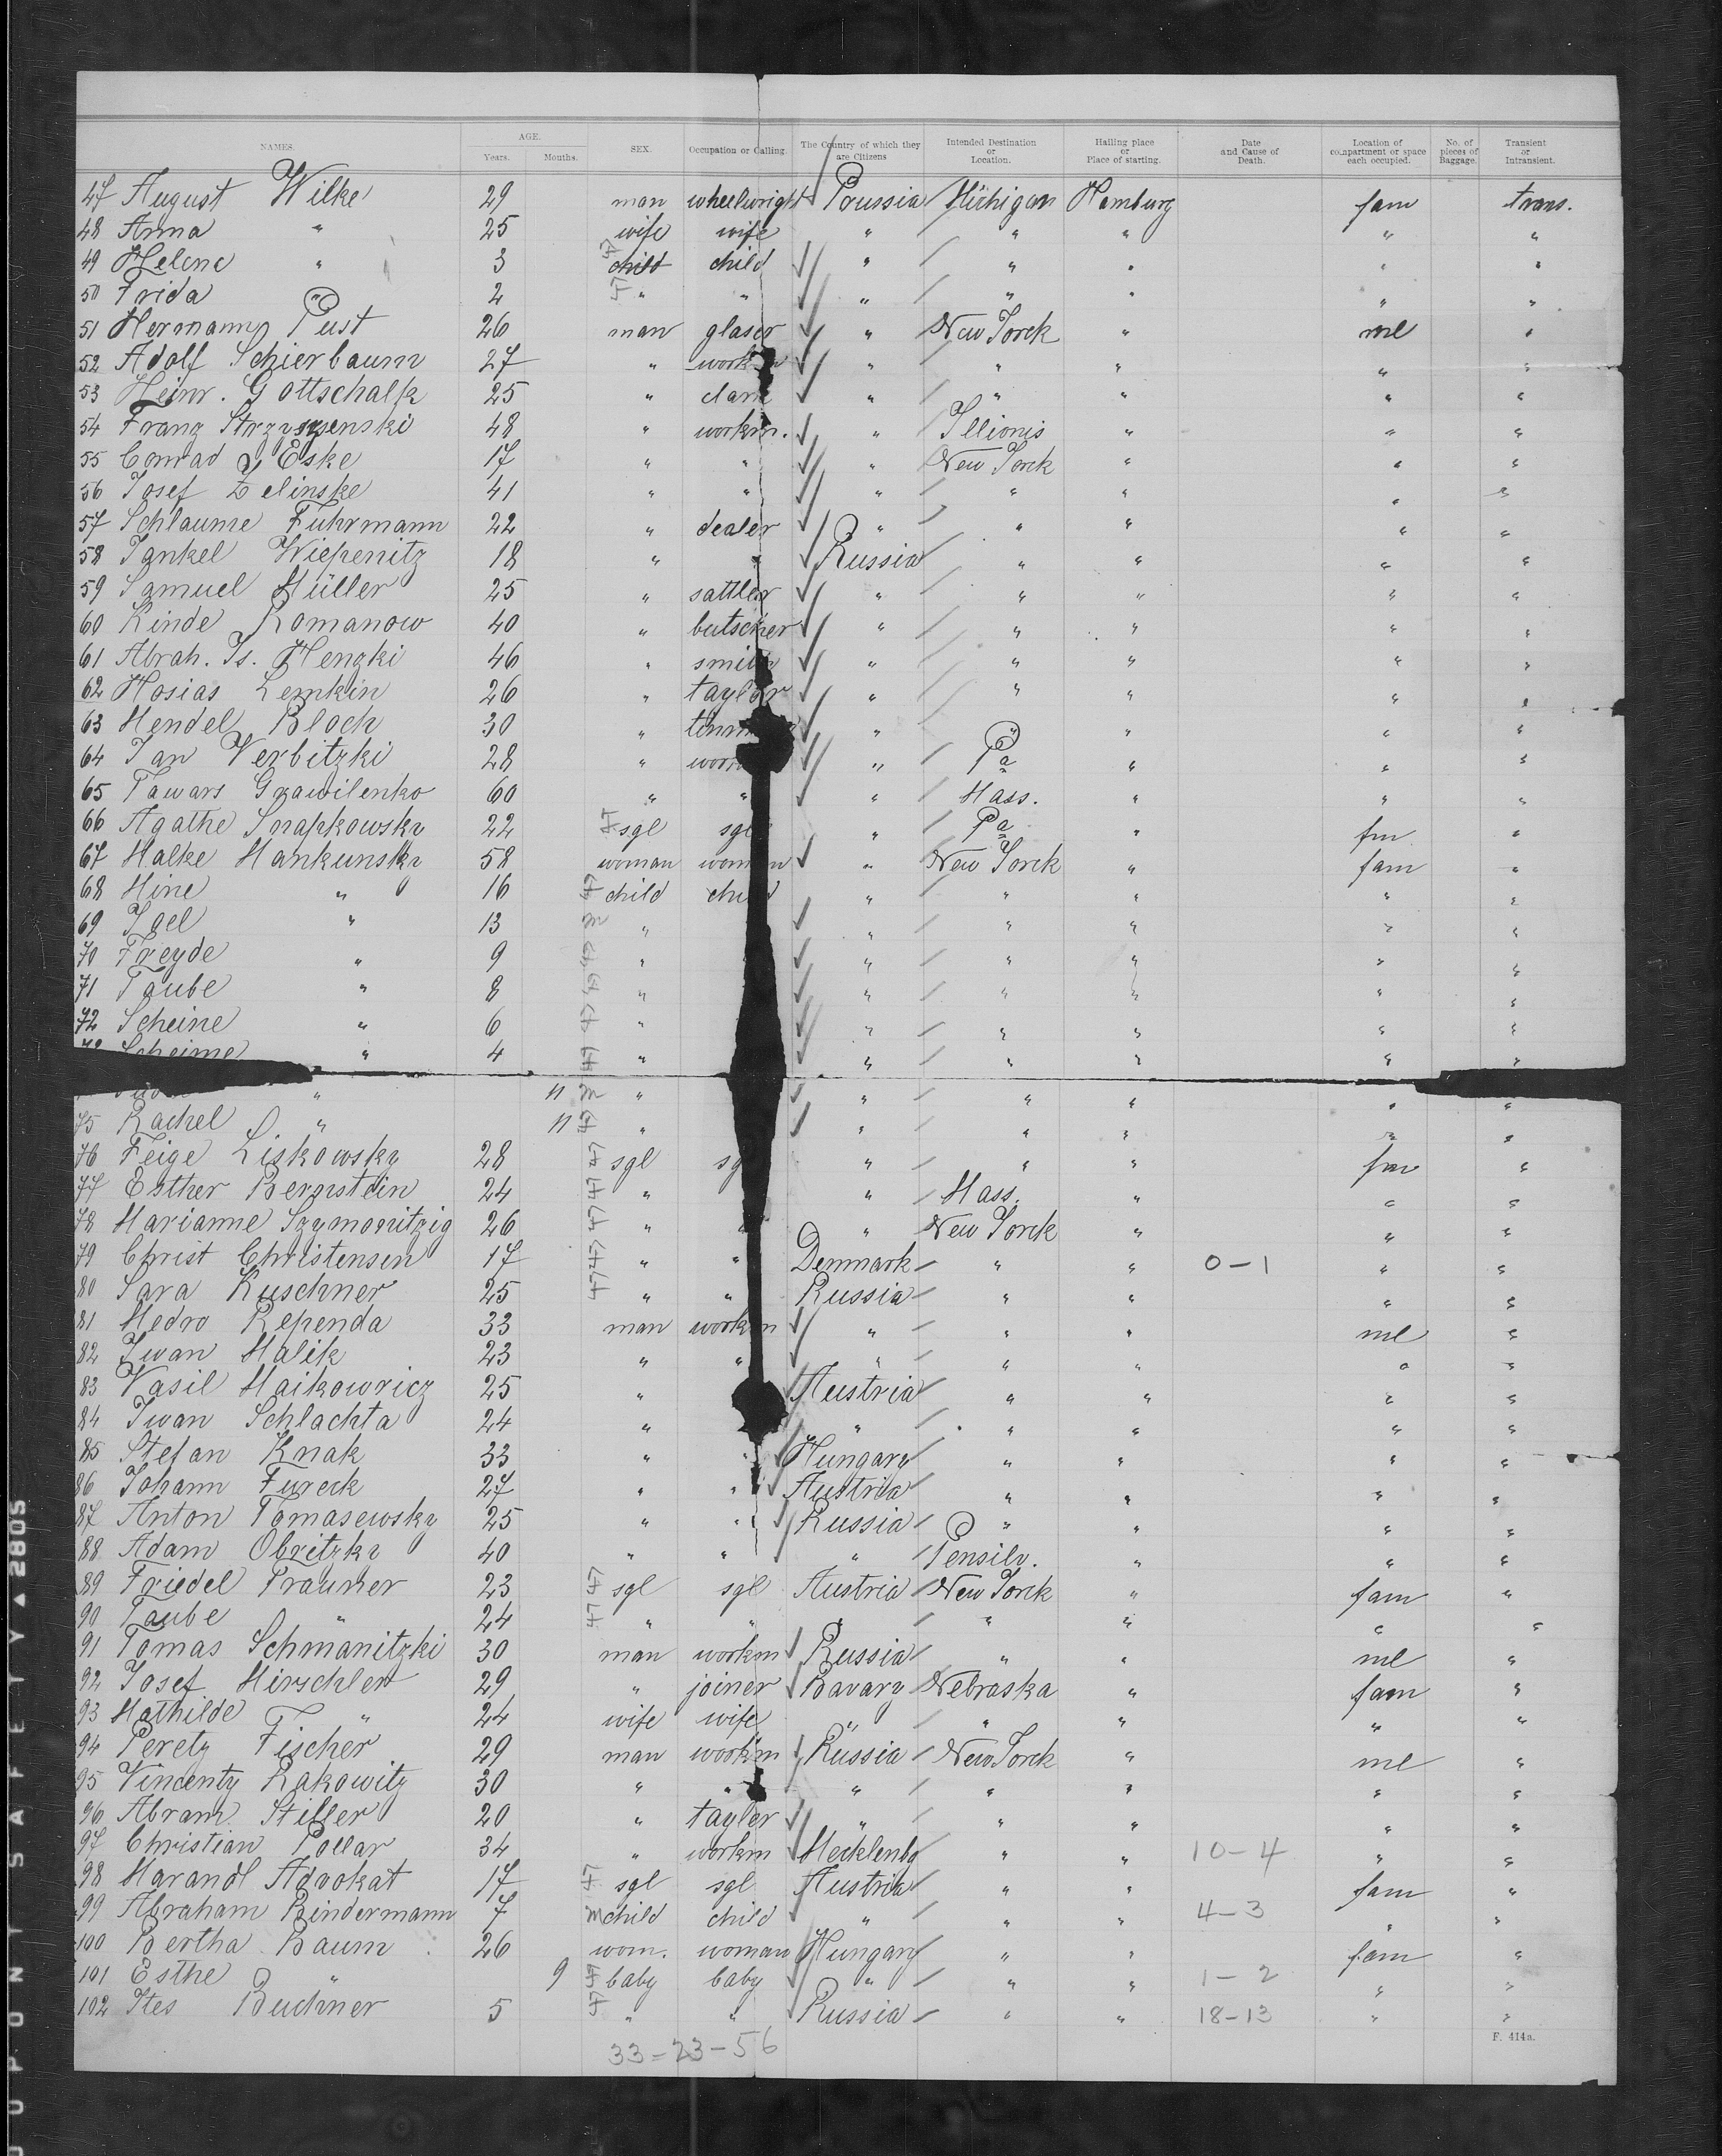 NAMES. AGE. Years. Months. SEX. Occupation or Calling. The Country of which they are Citizens Intended Destination or Location. Hailing place or Place of starting. Date and Cause of Death. Location of compartment or space each occupied. No. of pieces of Baggage. Transient or Intransient.
47 August Wilke 29 man wheelwright Prussia Michigan Hamburg fam trans.
48 Anna " 25 wife wife " " " " "
49 Helene " 3 child child " " " " "
50 Frida " 2 " " " " " " "
51 Hermann Pust 26 man glaser " New Yorck " ml "
52 Adolf Schierbaum 27 " " " " " "
53 Heinr. Gottschalk 25 " " " " " "
54 Franz 48 " workm. " Illionis " " "
55 Conrad Eske 17 " " " New Yorck " " "
56 Josef Zelinske 41 " " " " " " "
57 Schlaume Fuhrmann 22 " dealer " " " " "
58 Jankel Wiepenitz 18 " " Russia " " " "
59 Samuel Müller 25 " sattler " " " " "
60 Kinde Romanow 40 " butscher " " " " "
61 Abrah. Is. Mengki 46 " smith " " " " "
62 Mosias Lemkin 26 " taylor " " " " "
63 Mendel Bloch 30 " " " " " "
64 Jan Verbitzki 28 " " Pa " " "
65 Tawars Grawilenko 60 " " " Mass. " " "
66 Agathe Snapkowsky 22 sgl sgl " Pa " fm "
67 Malke Mankunsky 58 woman woman " New Yorck " fam "
68 Mine " 16 child child " " " " "
69 Zael " 13 " " " " " "
70 Freyde " 9 " " " " " "
71 Taube " 8 " " " " " "
72 Scheine " 6 " " " " " "
73 Scheime " 4 " " " " " "
" 11 " " " " " "
75 Rachel " 11 " " " " " "
76 Feige Liskowsky 28 sgl sgl " " " fm "
77 Esther Bernstein 24 " " Mass. " " "
78 Marianne Szymonitzig 26 " " " New Yorck " " "
79 Christ Christensen 17 " " Denmark " " 0-1 " "
80 Sara Kuschner 25 " " Russia " " " "
81 Medro Rependa 33 man workm " " " ml "
82 Iwan Malik 23 " " " " " " "
83 Vasil Maikowicz 25 " Austria " " " "
84 Iwan Schlachta 24 " " " " " "
85 Stefan Knak 33 " " Hungary " " " "
86 Johann Fureck 27 " " Austria " " " "
87 Anton Tomasewsky 25 " " Russia " " " "
88 Adam Obritzky 40 " " " Pensilv. " " "
89 Friedel Prauker 23 sgl sgl Austria New Yorck " fam "
90 Taube " 24 " " " " " " "
91 Tomas Schmanitzki 30 man workm Russia " " ml "
92 Josef Hirschler 29 " joiner Bavary Nebraska " fam "
93 Mathilde " 24 wife wife " " " " "
94 Peretz Fischer 29 man workm Russia New Yorck " ml "
95 Vincenty Rakowitz 30 " " " " " " "
96 Abram Stiller 20 " tayler " " " " "
97 Christian Pollar 34 " workm Mecklenbg " " 10-4 " "
98 Marandl Advokat 17 sgl sgl Austria " " fam "
99 Abraham Bindermann 7 child child " " " 4-3 " "
100 Bertha Baum 26 wom. woman Hungary " " fam "
101 Esthe " 9 baby baby " " " 1-2 " "
102 Ites Buchner 5 " " Russia " " 18-13 " "
F. 414a.
33=23-56
DUPONT SAFETY ▲ 2805